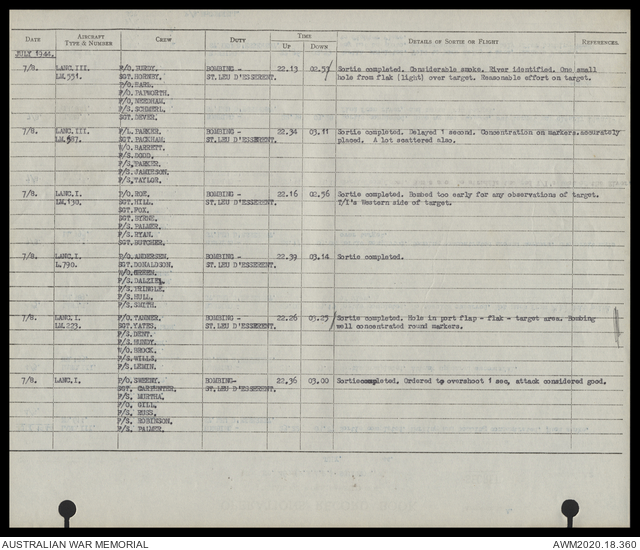 DATE AIRCRAFT TYPE & NUMBER CREW DUTY TIME UP DOWN DETAILS OF SORTIE OR FLIGHT REFERENCES.
JULY 1944.
7/8. LANC.III. BOMBING - 22.13 02.57 Sortie completed. Considerable smoke. River identified. One small
LM.551. SGT. HORNBY. ST.LEU D'ESSERENT. hole from flak (light) over target. Reasonable effort on target.
F/O. EARL.
F/O. PAPWORTH.
F/O. NEEDHAM.
F/S. SCHMERL.
SGT. DEWER.
7/8. LANC.III. F/L. PARKER. BOMBING - 22.34 03.11 Sortie completed. Delayed 1 second. Concentration on markers accurately
LM.587. SGT. PACKHAM. ST.LEU D'ESSERENT. placed. A lot scattered also.
F/O. BARRETT.
F/S. DODD.
F/S. BARKER.
F/S. JAMIESON.
F/S. TAYLOR.
7/8. LANC.I. P/O. ROE. BOMBING - 22.16 02.56 Sortie completed. Bombed too early for any observations of target.
LM.130. SGT. HILL. ST.LEU D'ESSERENT. T/I's Western side of target.
SGT. FOX.
SGT. BYRNE.
F/S. PALMER.
F/S. RYAN.
SGT. BUTCHER.
7/8. LANC.I. P/O. ANDERSEN. BOMBING - 22.39 03.14 Sortie completed.
L.790. SGT. DONALDSON. ST.LEU D'ESSERENT.
F/S. DALZIEL.
F/S. PRINGLE.
F/S. HULL.
F/S. SMITH.
7/8. LANC.I. F/O. TANNER. BOMBING - 22.26 03.25 Sortie completed. Hole in port flap - flak - target area. Bombing
LM.223. SGT. YATES. ST.LEU D'ESSERENT. well concentrated round markers.
F/S. DENT.
F/S. BUNDY.
W/O. BROCK.
F/S. WILLS.
F/S. LEMIN.
7/8. LANC.I. P/O. SWEENY. BOMBING- 22.36 03.00 Sortiecompleted. Ordered to overshoot 1 sec, attack considered good.
SGT. CARPENTER. ST.LEU D'ESSERENT.
F/S. MURTHA.
F/O. GILL.
F/S. ROSS.
F/S. ROBINSON.
F/S. PALMER.
AUSTRALIAN WAR MEMORIAL AWM2020.18.360